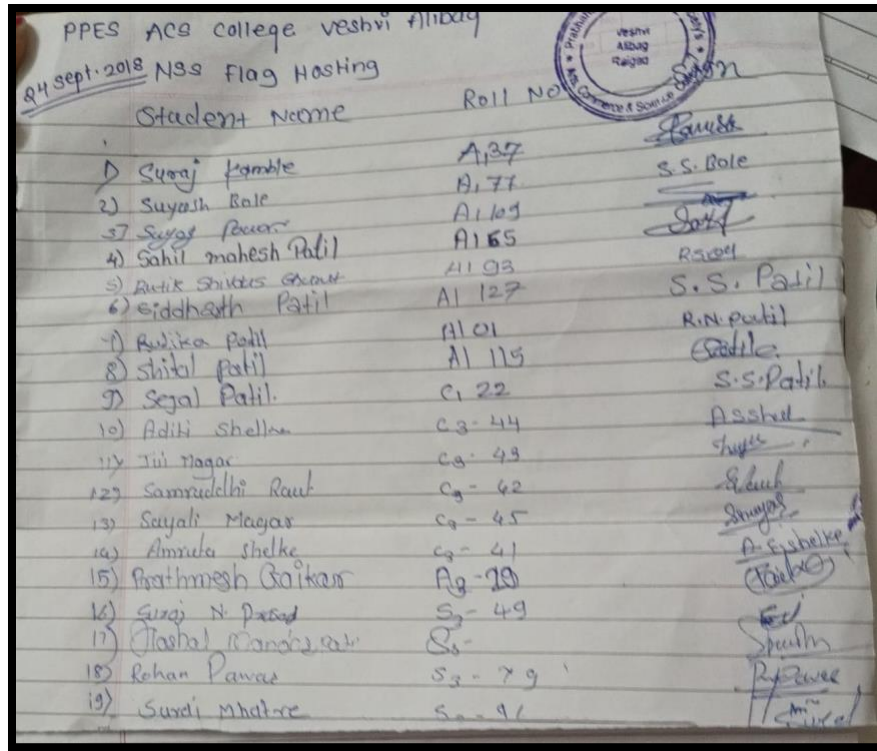 PPES ACS College Veshvi Alibag
24 Sept. 2018 NSS Flag Hosting
Veshvi
Alibag
Raigad
Student Name Roll No Sign
1) Suraj Kamble A1 37
2) Suyash Bole A1 77 S.S. Bole
3) Suyog Pawar A1 109
4) Sahil mahesh Patil A1 65
5) Rutik A1 93
6) Siddharth Patil A1 127 S. S. Patil
7) Rutika Patil A1 01 R.N. patil
8) Shital Patil A1 115
9) Sejal Patil. C1 22 S.S. Patil.
10) Aditi Shelke C3 - 44
11) Jui Magar C3 - 43
12) Samruddhi Raut C3 - 42
13) Sayali Magar C3 - 45
14) Amruta Shelke C3 - 41 A. S. shelke
15) Prathmesh Gaikar A3 - 19
16) Suraj N. S3 - 49
17)
18) Rohan Pawar S3 - 79
19) Mhatre